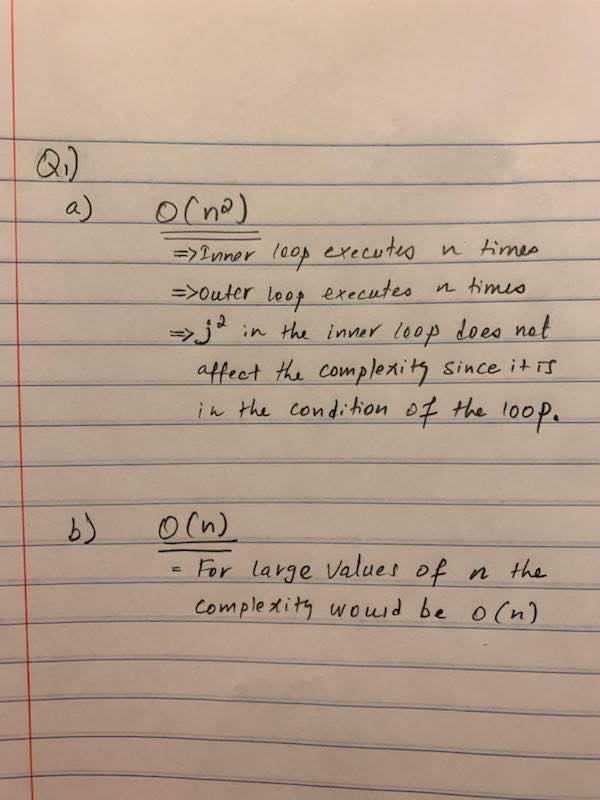 Q1)
a) O(n²)
=> Inner loop executes n times
=> outer loop executes n times
=> j² in the inner loop does not
affect the complexity since it is
in the condition of the loop.
b) O(n)
= For large values of n the
complexity would be O(n)